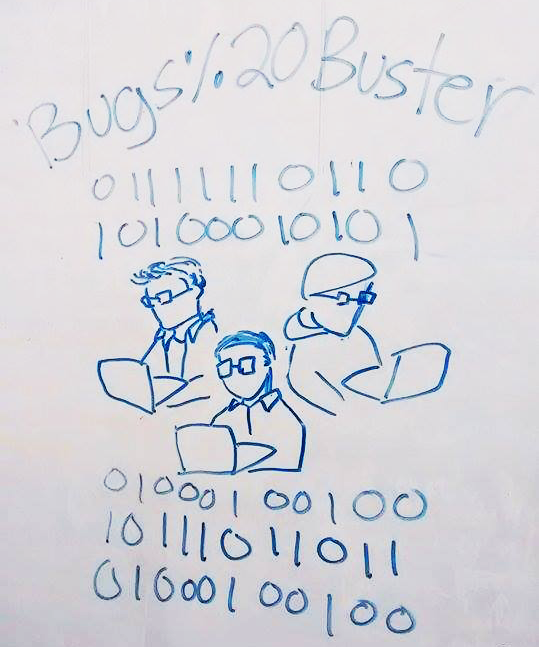 Bugs%20Buster
011111110110
1010001010101
01000100100
10111011011
01000100100